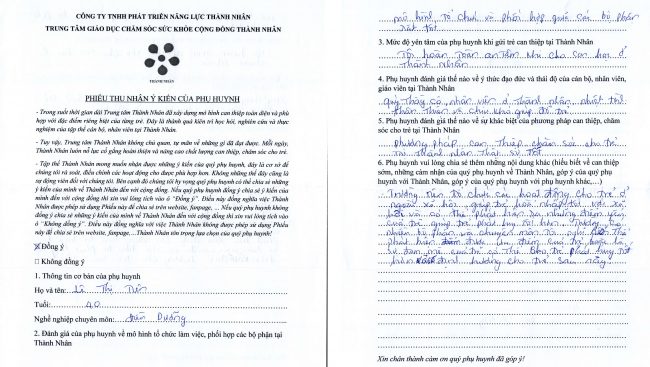 CÔNG TY TNHH PHÁT TRIỂN NĂNG LỰC THÀNH NHÂN
TRUNG TÂM GIÁO DỤC CHĂM SÓC SỨC KHỎE CỘNG ĐỒNG THÀNH NHÂN
THÀNH NHÂN
PHIẾU THU NHẬN Ý KIẾN CỦA PHỤ HUYNH
- Trong suốt thời gian dài Trung tâm Thành Nhân đã xây dựng mô hình can thiệp toàn diện và phù
hợp với đặc điểm riêng biệt của từng trẻ. Đây là thành quả kiên trì học hỏi, nghiên cứu và thực
nghiệm của tập thể cán bộ, nhân viên tại Thành Nhân.
- Tuy vậy, Trung tâm Thành Nhân không chủ quan, tự mãn về những gì đã đạt được. Mỗi ngày,
Thành Nhân luôn nỗ lực cố gắng hoàn thiện và nâng cao chất lượng can thiệp, chăm sóc cho trẻ.
- Tập thể Thành Nhân mong muốn nhận được những ý kiến của quý phụ huynh, đây là cơ sở để
chúng tôi rà soát, điều chỉnh các hoạt động cho được phù hợp hơn. Không những thế đây cũng là
sự động viên đối với chúng tôi. Bên cạnh đó chúng tôi hy vọng quý phụ huynh có thể chia sẻ những
ý kiến của mình về Thành Nhân đến với cộng đồng. Nếu quý phụ huynh đồng ý chia sẻ ý kiến của
mình đến với cộng đồng thì xin vui lòng tích vào ô "Đồng ý". Điều này đồng nghĩa việc Thành
Nhân được phép sử dụng Phiếu này để chia sẻ trên website, fanpage, ... Nếu quý phụ huynh không
đồng ý chia sẻ những ý kiến của mình về Thành Nhân đến với cộng đồng thì xin vui lòng tích vào
ô "Không đồng ý". Điều này đồng nghĩa với việc Thành Nhân không được phép sử dụng Phiếu
này để chia sẻ trên website, fanpage, ... Thành Nhân tôn trọng lựa chọn của quý phụ huynh!
Đồng ý
Không đồng ý
1. Thông tin cơ bản của phụ huynh
Họ và tên: Lê Thị
Tuổi: 40
Nghề nghiệp chuyên môn: Dưỡng
2. Đánh giá của phụ huynh về mô hình tổ chức làm việc, phối hợp các bộ phận tại
Thành Nhân
mô hình, tổ chức và phối hợp giữa các bộ phận
rất tốt
3. Mức độ yên tâm của phụ huynh khi gửi trẻ can thiệp tại Thành Nhân
Tôi hoàn toàn an tâm khi cho con học ở
Thành Nhân
4. Phụ huynh đánh giá thế nào về ý thức đạo đức và thái độ của cán bộ, nhân viên,
giáo viên tại Thành Nhân
Quý thầy cô, nhân viên ở Thành nhân, nhiệt tình
thân thiện và chịu khó giúp đỡ trẻ
5. Phụ huynh đánh giá thế nào về sự khác biệt của phương pháp can thiệp, chăm
sóc cho trẻ tại Thành Nhân
phương pháp can thiệp, chăm sóc cho trẻ
tại Thành nhân rất tốt
6. Phụ huynh vui lòng chia sẻ thêm những nội dung khác (hiểu biết về can thiệp
sớm, những cảm nhận của quý phụ huynh về Thành Nhân, góp ý của quý phụ
huynh với Thành Nhân, góp ý của quý phụ huynh với phụ huynh khác,...)
tổ chức các hoạt động cho trẻ ở
ngoài xã hội, giúp trẻ hòa nhập tốt với xã
hội và có thể phát hiện ra những điểm yếu
của trẻ, giúp trẻ phát huy tốt hơn.
định hướng cho trẻ sau này
Xin chân thành cảm ơn quý phụ huynh đã góp ý!